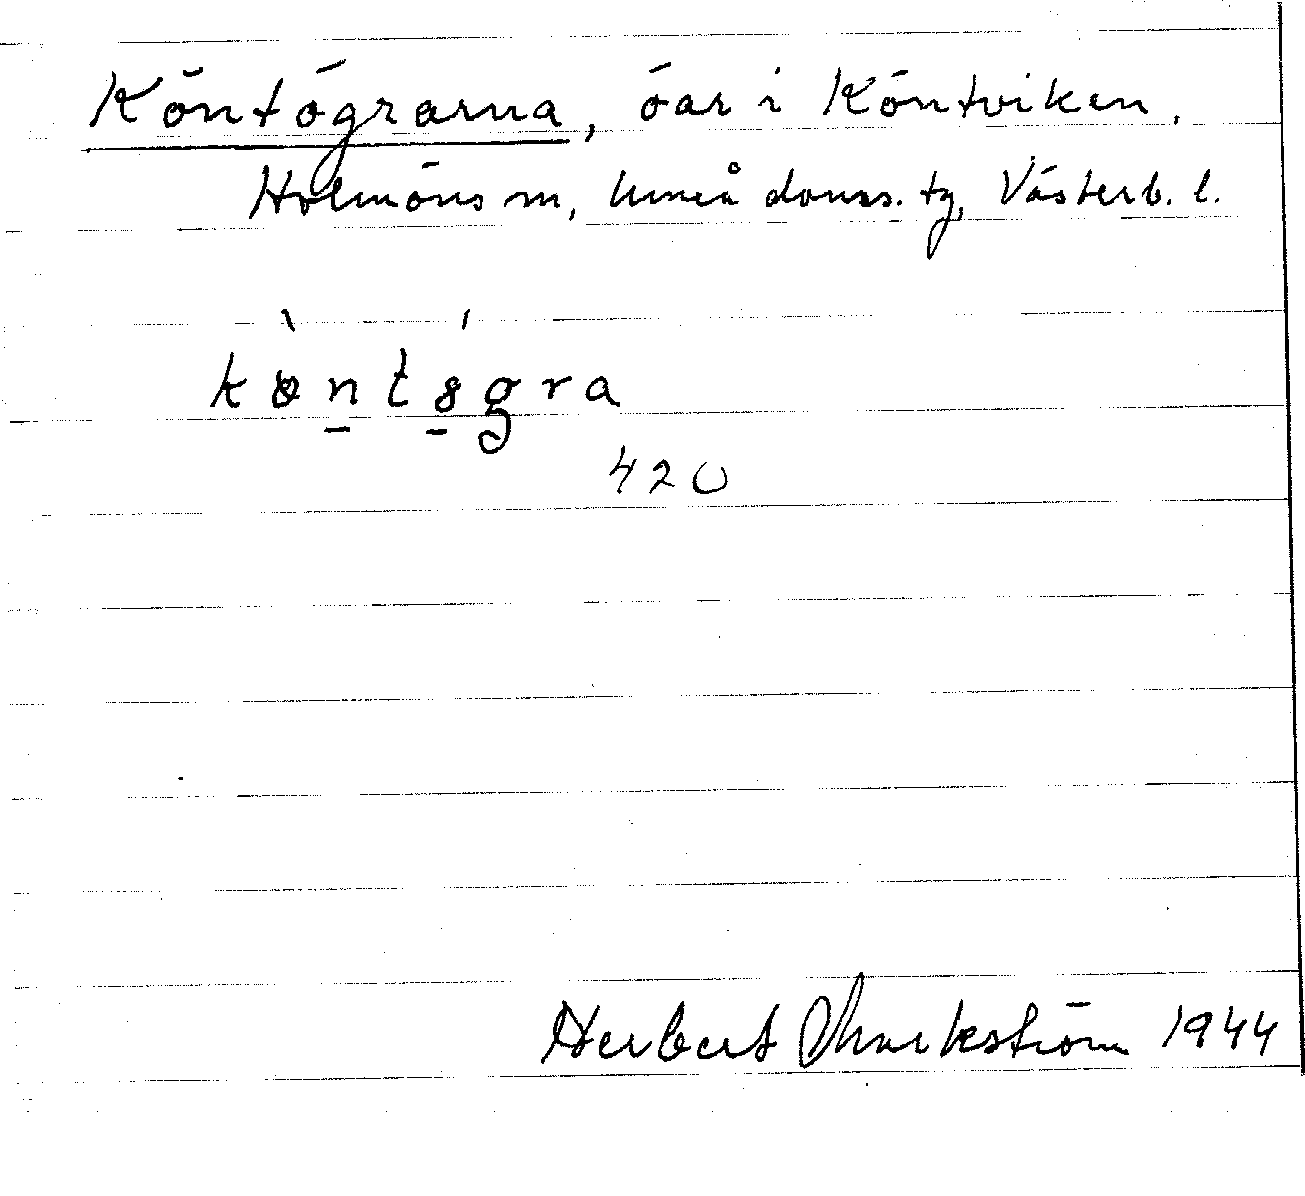 Köntögrarna, öar i Köntviken,
Holmöns sn, Umeå domss. tg, Västerb. l.
køntøgra
420
Herbert Markström 1944